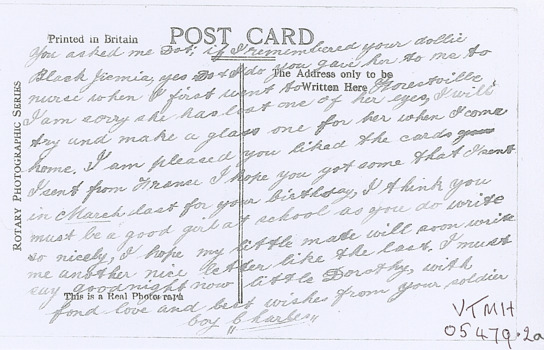 Printed in Britain
POST CARD
You asked me Dot, if I remembered your dollie
Black Jiemia, yes Dot I do you gave her to me to
The Address only to be
Written Here
nurse when I first went to Forestville
I am sorry she has lost one of her eyes, I will
try and make a glass one for her when I come
home. I am pleased you liked the cards
I sent from France I hope you got some that I sent
in March last for your birthday, I think you
must be a good girl at school as you do write
so nicely, I hope my little mate will soon write
me another nice letter like the last. I must
say goodnight now little Dorothy, with
fond love and best wishes from your soldier
boy "Charles"
This is a Real Photograph
ROTARY PHOTOGRAPHIC SERIES
VTMH
05479.2a